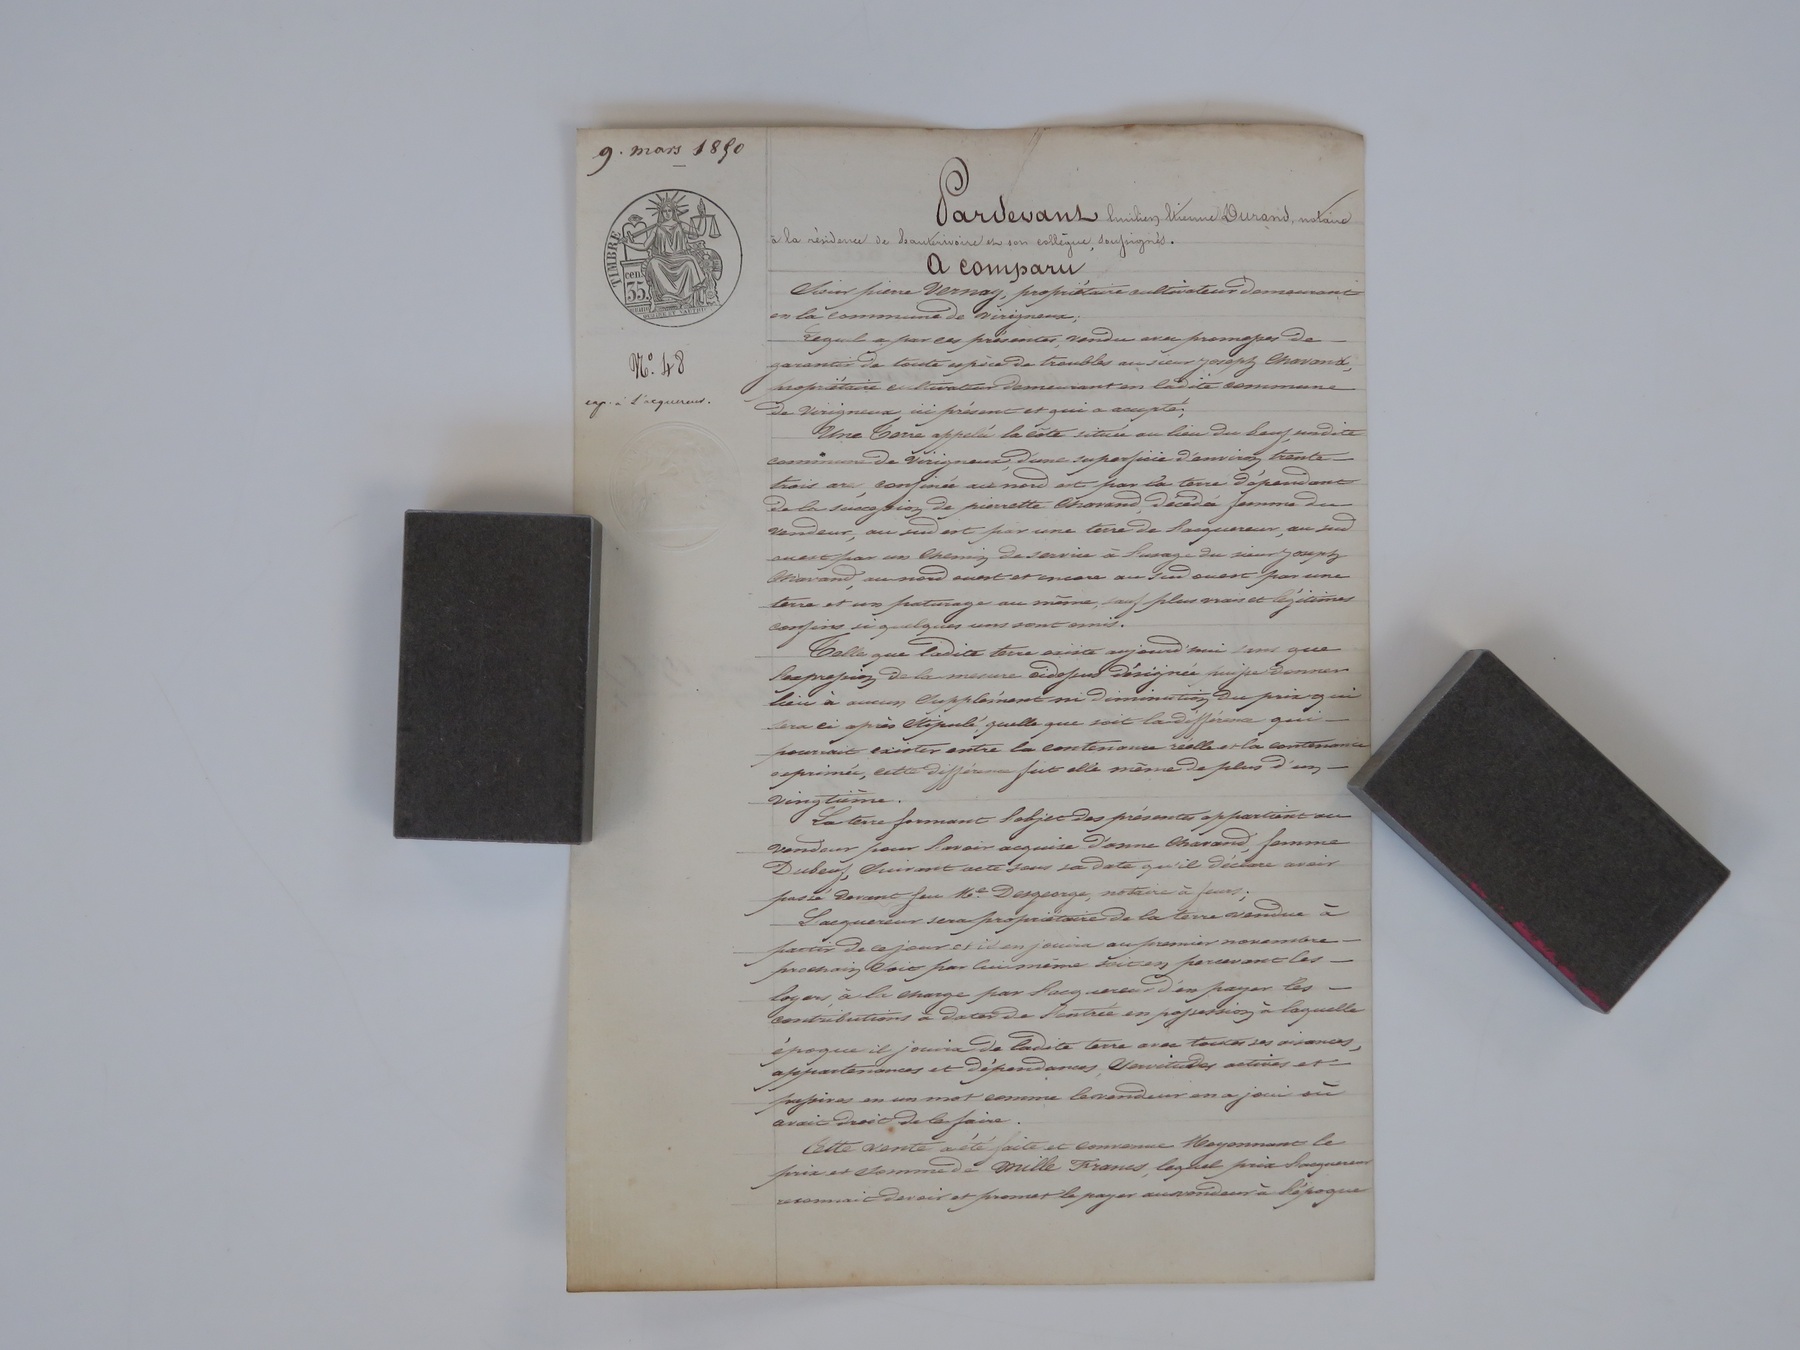 9. mars 1850
TIMBRE
35 cent
N.o 48
exp. à l'acquereur.
Pardevant Etienne Durand, notaire
à la résidence de hauterivoire et son collègue, soussignés.
A comparu
Sieur pierre Vernay, propriétaire cultivateur demeurant
en la commune de virigneux;
Lequel a par ces présentes, vendu avec promesses de
garantir de toute espèce de troubles au sieur joseph Chavand,
propriétaire cultivateur demeurant en ladite commune
de virigneux ici présent et qui a accepté;
Une Terre appelé la côte située au lieu du beuf, susdite
commune de virigneux, d'une superficie d'environ trente
trois ares confinée au nord est par la terre dépendant
de la succession de pierrette Chavand, décédée femme du
vendeur, au sud est par une terre de l'acquereur, au sud
ouest par un chemin de service à l'usage du sieur joseph
Chavand, au nord ouest et encore au sud ouest par une
terre et un paturage au même, sauf plus vrais et légitimes
confins si quelques uns sont omis.
Telle que ladite terre existe aujourd'hui sans que
l'expression de la mesure cidessus désignée puisse donner
lieu à aucun supplément ni diminution du prix qui
sera ci après stipulé, quelle que soit la différence qui
pourrait exister entre la contenance réelle et la contenance
exprimée, cette différence fut elle même de plus d'un
vingtième.
La terre formant l'objet des présentes appartient au
vendeur pour l'avoir acquise d'anne Chavand, femme
Dubeuf, suivant acte sous sa date qu'il déclare avoir
passé devant feu Me Desgeorge, notaire à feurs.
L'acquereur sera propriétaire de la terre vendue à
partir de ce jour et il en jouira au premier novembre
prochain soit par lui même soit en percevant les
loyers, à la charge par l'acquereur d'en payer les
contributions à dater de l'entrée en possession à laquelle
époque il jouira de ladite terre avec toutes ses aisances,
appartenances et dépendances, servitudes actives et
passives en un mot comme le vendeur en a joui où
avait droit de le faire.
Cette vente a été faite et convenue Moyennant le
prix et somme de Mille Francs, lequel prix l'acquereur
reconnait devoir et promet le payer au vendeur à l'époque